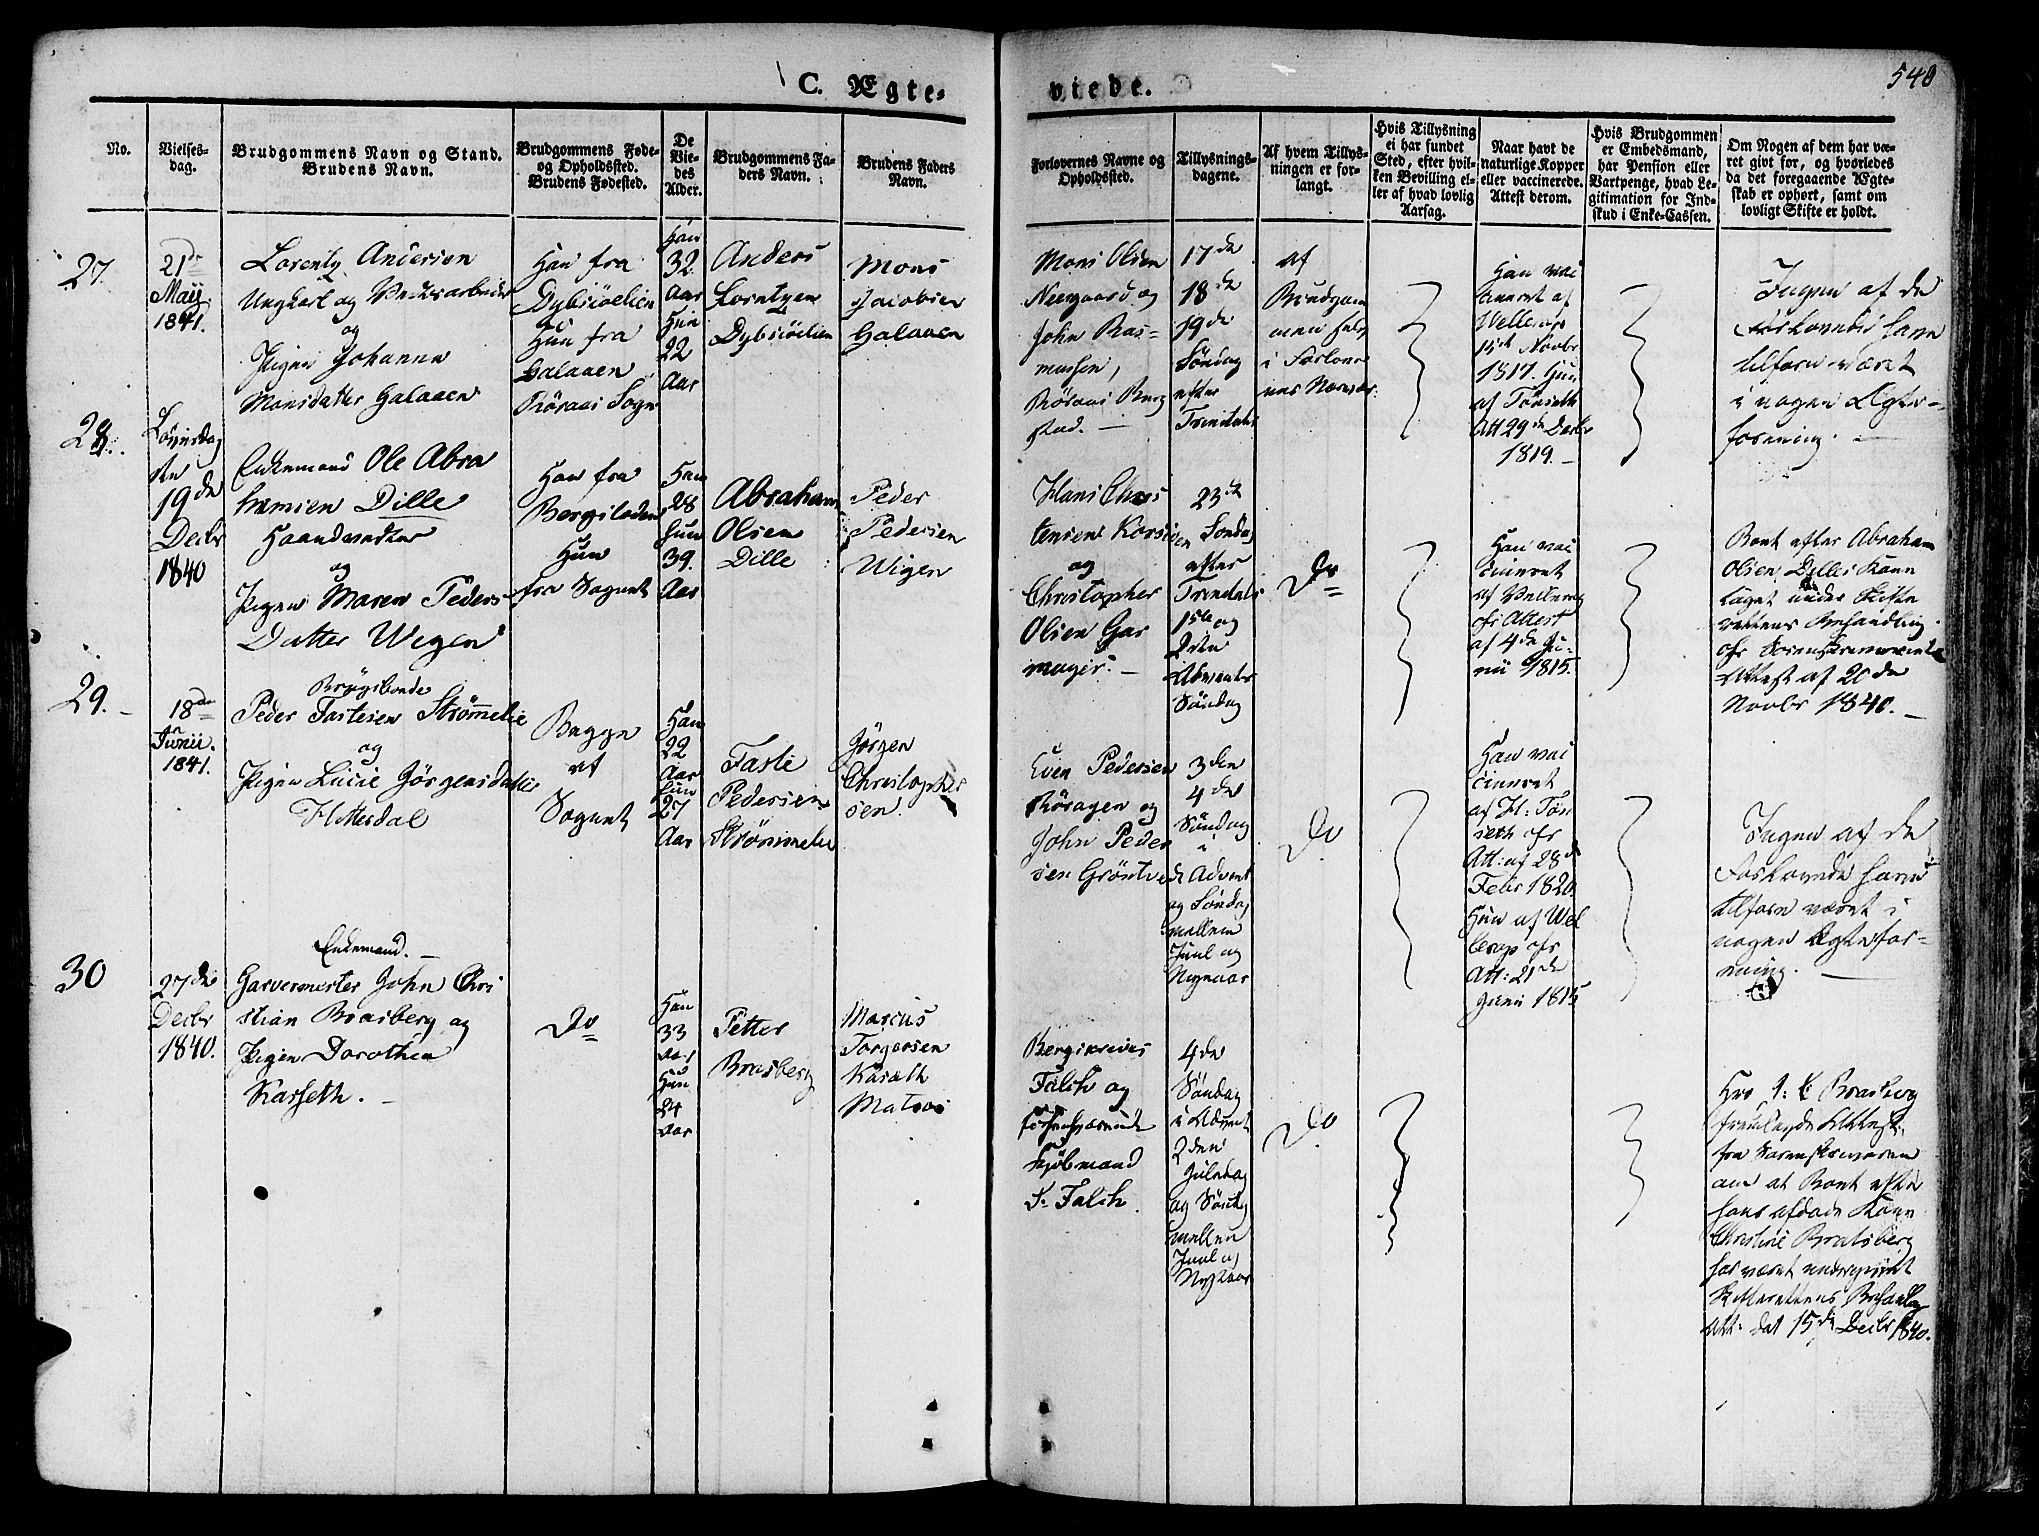 C. Ægte-
viede.
540
No.
Vielses-
dag.
Brudgommens Navn og Stand.
Brudens Navn.
Brudgommens Føde-
og Opholdssted.
Brudens Fødested.
De
Vie-
des
Alder.
Brudgommens Fa-
ders Navn.
Brudens Faders
Navn.
Forlovernes Navne og
Opholdssted.
Tillysnings-
dagene.
Af hvem Tillys-
ningen er for-
langt.
Hvis Tillysning
ei har fundet
Sted, efter hvil-
ken Bevilling el-
ler af hvad lovlig
Aarsag.
Naar havt de
naturlige Kopper
eller vaccinerede.
Attest derom.
Hvis Brudgommen
er Embedsmand,
har Pension eller
Vartpenge, hvad Le-
gitimation for Ind-
skud i Enke-Cassen.
Om Nogen af dem har væ-
ret givt før, og hvorledes
da det foregaaende Ægte-
skab er ophørt, samt om
lovligt Skifte er holdt.
27.
21de
Maij
1841.
Lorentz Andersen
Ungkarl og
og
Pigen Johanna
Monsdatter Galaaen
Han fra
Dybsiøelien
Hun fra
Galaaen
Röraas Sogn
Han
32
Aar
Hun
22
Aar
Anders
Lorntzen
Dybsiöelien
Mons
Jacobsen
Galaaen
Mons Olsen
Neergaard og
John Ras-
mussen,
Röraas Berg
stad. —
17de
18de
19de
Söndag
efter
Trinitatis
af
Brudgom
men selv
i Forlover
nes Nærvær.
Han vac
cineret af
15de Novbr
1817. Hun
af Tönseth
Att 29de Decbr
1819. —
Ingen af de
Forlovede have
tilforn været
i nogen Ægte-
forening. —
28.
Löverdag
den
19de
Decbr
1840
Enkemand Ole Abra
hamsen Dille
Haandverker
og
Pigen Maren Peders
Datter Wigen
Han fra
Bergstaden
Hun
fra Sognet
Han
28
Hun
39.
Aar
Abraham
Olsen
Dille
Peder
Pedersen
Wigen
Hans Chris
tensen Korsveen
og
Christopher
Olsen Gar
mager. —
23de
Sondag
efter
Trinitatis
1ste og
2den
Advents
Söndag
Do
Han vac
cineret
cfr Attest
af 4de Ju-
nii 1815.
Boet efter Abraham
Olsen Dilles Kone
taget under Skifte
rettens Behandling
cfr Sorenskriverens
Attest af 20de
Novbr 1840. —
29. —
18de
Junii.
1841.
Brugsbonde
Peder Fastesen Strømmelie
og
Pigen Lucie Jörgensdatter
Hittesdal
Begge
af
Sognet
Han
22
Aar
Hun
27
Aar
Faste
Pedersen
Strömmelie
Jörgen
Christopher
sen.
Even Pedersen
Röragen og
John Peder
sen Gröntved
3den
4de
Söndag
i
Advent
og Söndag
mellem
Juul og
Nyeaar
Do
Han vac
cineret
af H: Tön
seth cfr
Att: af 28de
Febr 1820
Hun af Wel
lerop cfr
Att: 21de
Junii 1815
Ingen af de
Forlovede have
tilforn været i
nogen Ægtefor-
ening. —
30
27de
Decbr
1840.
Enkemand. —
Garvermester John Chri
stian Braseberg og
Pigen Dorothea
Kasseth. —
Do
Han
33
Aar
Hun
24
Aar
Petter
Brasberg
Marcus
Torgersen
Kaaseth
Matros
Bergskriver
Falch og
Kjöbmand
Falch.
4de
Söndag
i Advent
2den
Juledag
og Söndag
mellem
Juul og
Nytaar
Do
Hr. J: C Brasberg
fremlagde Attest
fra Sorenskriveren
om at Boet efter
hans afdøde Kone
Christine Bratsberg
har været undergivet
Skifterettens Behandling
Att: dat 15de Decbr 1840.